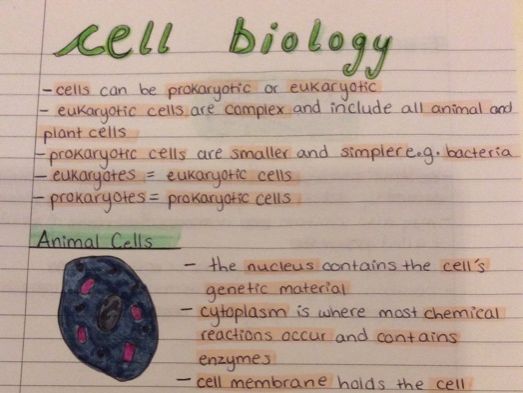 cell biology
- cells can be prokaryotic or eukaryotic
- eukaryotic cells are complex and include all animal and
plant cells
- prokaryotic cells are smaller and simpler e.g. bacteria
- eukaryotes = eukaryotic cells
- prokaryotes = prokaryotic cells
Animal Cells
- the nucleus contains the cell's
genetic material
- cytoplasm is where most chemical
reactions occur and contains
enzymes
- cell membrane holds the cell